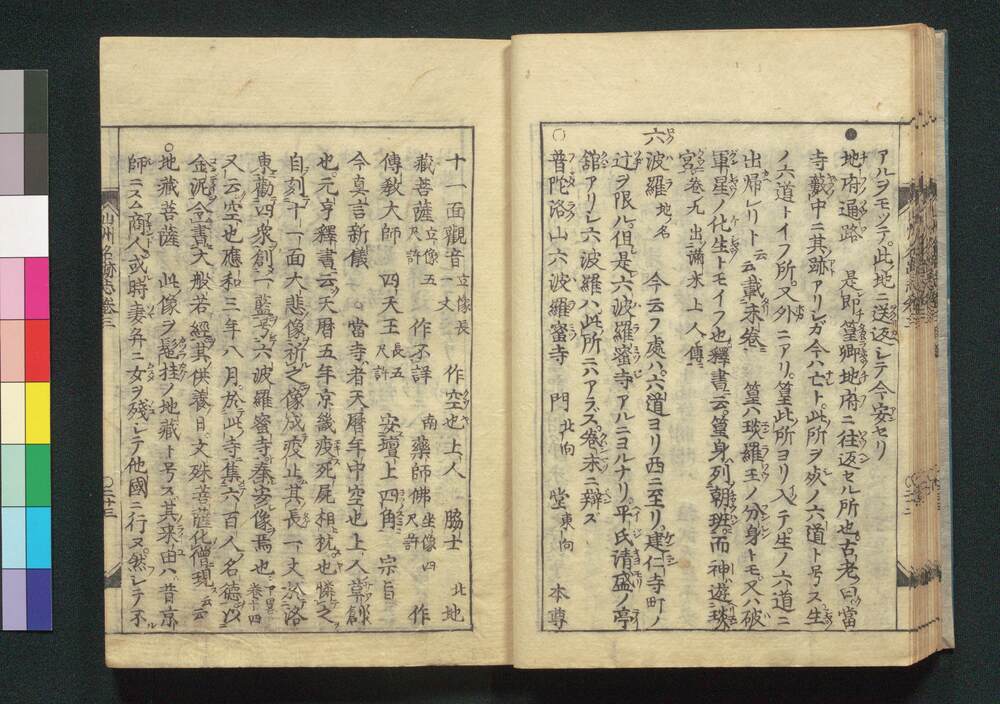 アルヲモツテ此地ニ送返シテ今安セリ
●地府通路 是即篁卿地府ニ往返セル所也古老曰當
寺藪中ニ其跡アリシガ今ハ亡ト此所ヲ死ノ六道ト号ス生
ノ六道トイフ所又外ニアリ篁此所ヨリ入テ生ノ六道ニ
出帰レリト云云載末卷 篁ハ琰羅王ノ分身トモ又破
軍星ノ化生トモイフ也釋書云篁身列朝班而神遊琰
宮卷九出滿米上人傳
六波羅地名 今云フ處ハ六道ヨリ西ニ至リ建仁寺町ノ
辻ヲ限ル但是六波羅蜜寺アルニヨルナリ平氏清盛ノ亭
舘アリシ六波羅ハ此所ニアラズ卷末ニ辯ズ
○普陀洛山六波羅蜜寺 門北向 堂東向 本尊
十一面觀音立像長一丈 作空也上人 脇士 北地
藏菩薩立像五尺許 作不詳 南藥師佛坐像四尺許 作
傳教大師 四天王長五尺許 安壇上四角 宗旨
今真言新儀 當寺者天曆年中空也上人草創
也元亨釋書云天曆五年京畿疫死屍相枕也憐之
自刻十一面大悲像祈之像成疫止其長一丈於洛
東勸四衆創一藍号六波羅蜜寺奉安像焉也卷十四
又云空也應和三年八月於此寺集六百人名德以
金泥令書大般若經其供養日文殊菩薩化僧現云云
○地藏菩薩 此像ヲ鬘挂ノ地藏ト号ス其来由ハ昔京
師ニス厶商人或時妻并ニ女ヲ殘シテ他國ニ行ヌ然シテ不
山州名跡志卷三
○二十三